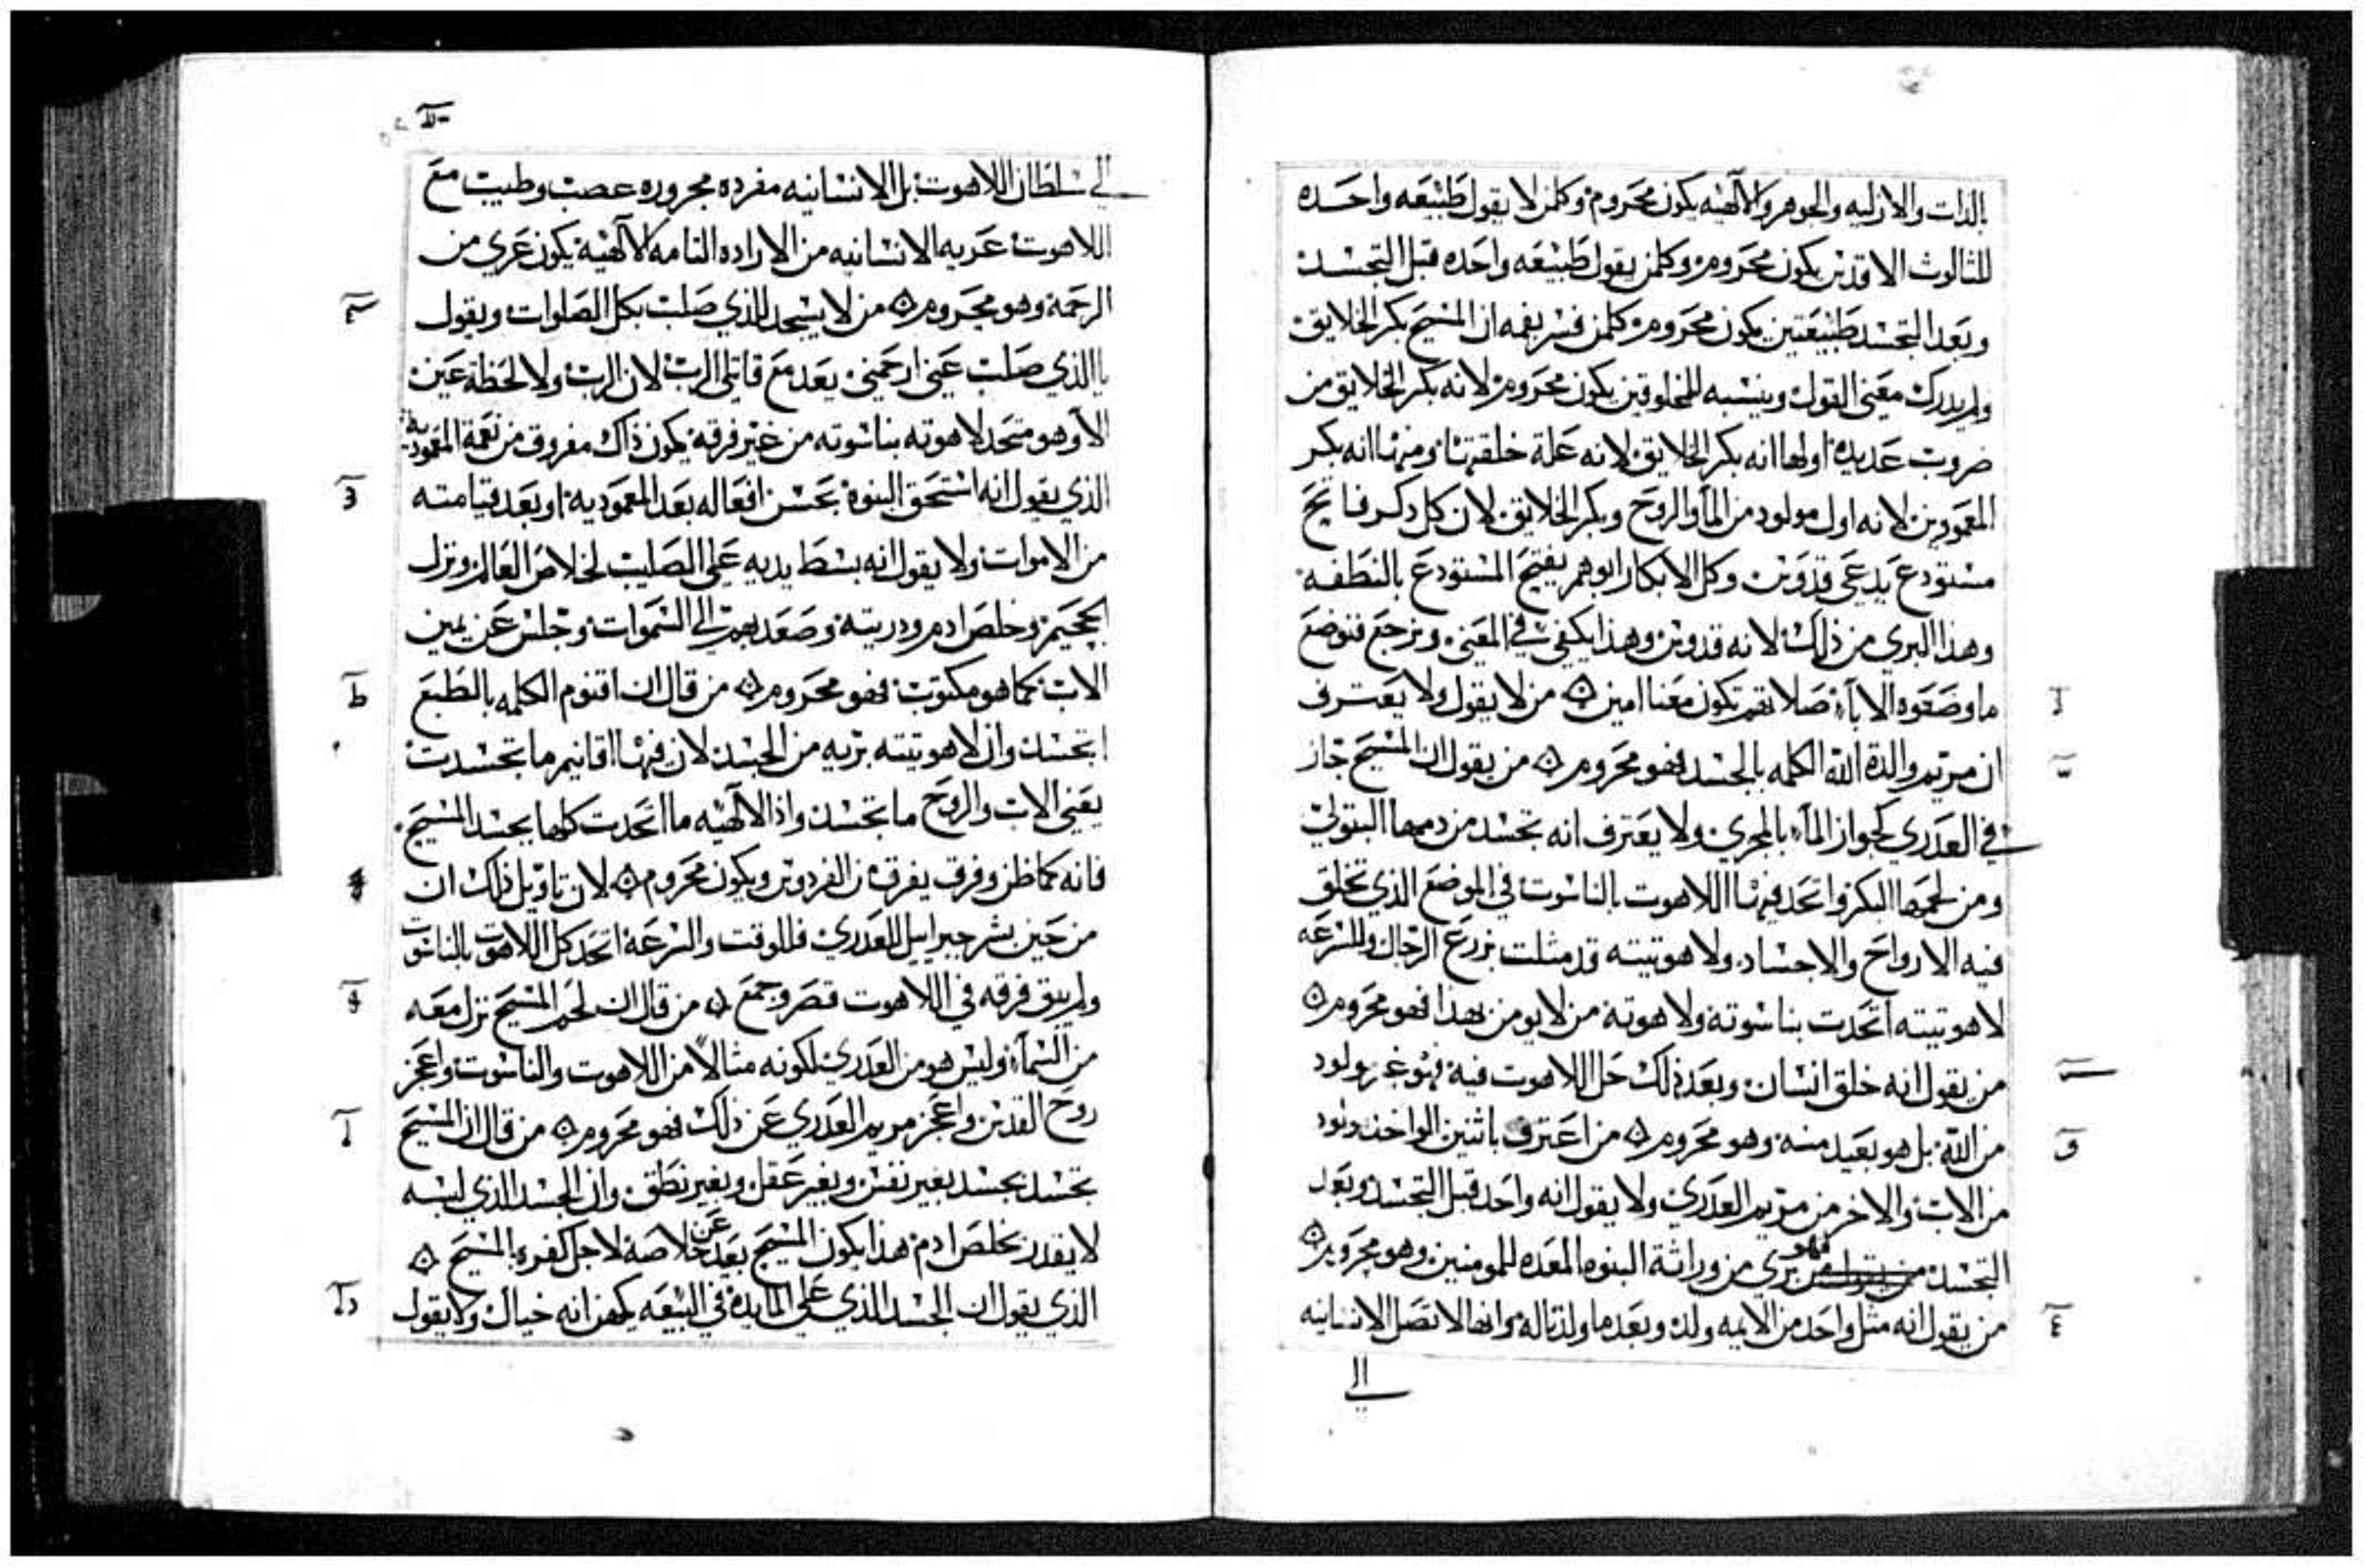 بالذات والازليه والجوهر والآلهيه يكون محروم وكلمن لا يقول طبيعه واحده
للثالوث الاقدس يكون محروم وكلمن يقول طبيعه واحده قبل التجسد
وبعد التجسد طبيعتين يكون محروم كلمن فسر بفمه ان المسيح بكر الخلايق
ولم يدرك معنى القول وينسبه للمخلوقين يكون محروم لانه بكر الخلايق من
ضروب عديده اولها انه بكر الخلايق لانه علة خلقتنا ومنها انه بكر
المعمودين لانه اول مولود من المآ والروح وبكر الخلايق لان كل دكر فاتح
مستودع يدعى قدوس وكل الابكار ابوهم يفتح المستودع بالنطفه
وهذا البري من ذلك لانه قدوس وهذا يكفي في المعنى ونرجع فنوضع
ما وضعوه الابآء صلاتهم تكون معنا امين من لا يقول ولا يعترف
ا
ان مريم والدة الله الكلمه بالجسد فهو محروم من يقول ان المسيح جاز
ب
في العدري كجواز المآء بالمجري ولا يعترف انه تجسد من دمها البتولي
ومن لحمها البكر واتحد فيها اللاهوت بالناسوت في الموضع الذي تخلق
فيه الارواح والاجساد ولاهوتيته قد مثلت بزرع الرجال وللسرعه
لاهوتيته اتحدت بناسوته ولاهوته من لا يومن بهذا فهو محروم
من يقول انه خلق انسان وبعد ذلك حل اللاهوت فيه فهو غير مولود
من الله بل هو بعيد منه وهو محروم من اعترف باثنين الواحد مولود
من الاب والاخر من مريم العدري ولا يقول انه واحد قبل التجسد وبعد
التجسد فهو بري من وراثة البنوه المعده للمومنين وهو محروم
من يقول انه مثل واحد من الايمه ولد وبعد ما ولد تاله وانها لا تصل الانسانيه
الى
الى سلطان اللاهوت بل الانسانيه مفرده مجروره عصب وطيب مع
اللاهوت عريه الانسانيه من الاراده التامه كالآلهيه يكون عري من
الرحمة وهو محروم من لا يسجد للذي صلب بكل الصلوات ويقول
ياالذي صلب عني ارحمني يعد مع قاتلي الرب لان الرب ولا لحظة عين
الا وهو متحد لاهوته بناسوته من غير فرقة يكون ذاك مفروق من نعمة المعموديه
الذي يقول انه استحق البنوة بحسن افعاله بعد المعموديه او بعد قيامته
من الاموات ولا يقول انه بسط يديه على الصليب لخلاص العالم ونزل
الجحيم وخلص ادم ودريته وصعد بهم الى السموات وجلس عن يمين
الاب كما هو مكتوب فهو محروم من قال ان اقنوم الكلمه بالطبع
ط
اتجسد وان لاهوتيته بريه من الجسد لان فيها اقانيم ما تجسدت
يعني الاب والروح ما تجسد واذ الآلهيه ما اتحدت كلها بجسد المسيح
فانه كما ظن وفرق يفرق من الفردوس ويكون محروم لان تاويل ذلك ان
من حين بشر جبراييل للعدري فللوقت والسرعه اتحد كل اللاهوت بالناسوت
ولم يبق فرقه في اللاهوت قصر وجمع من قال ان لحم المسيح نزل معه
من السمآء وليس هو من العدري لكونه مثالاً من اللاهوت والناسوت واعجز
روح القدس واعجز مريم العدري عن ذلك فهو محروم من قال ان المسيح
تجسد بجسد بغير نفس وبغير عقل وبغير نطق وان الجسد الذي لبسه
لا يقدر يخلص ادم هذا يكون المسيح بعد عن خلاصه لاجل كفره بالمسيح
الذي يقول ان الجسد الذي على المايده في البيعه يكهن انه خيال ولا يقول